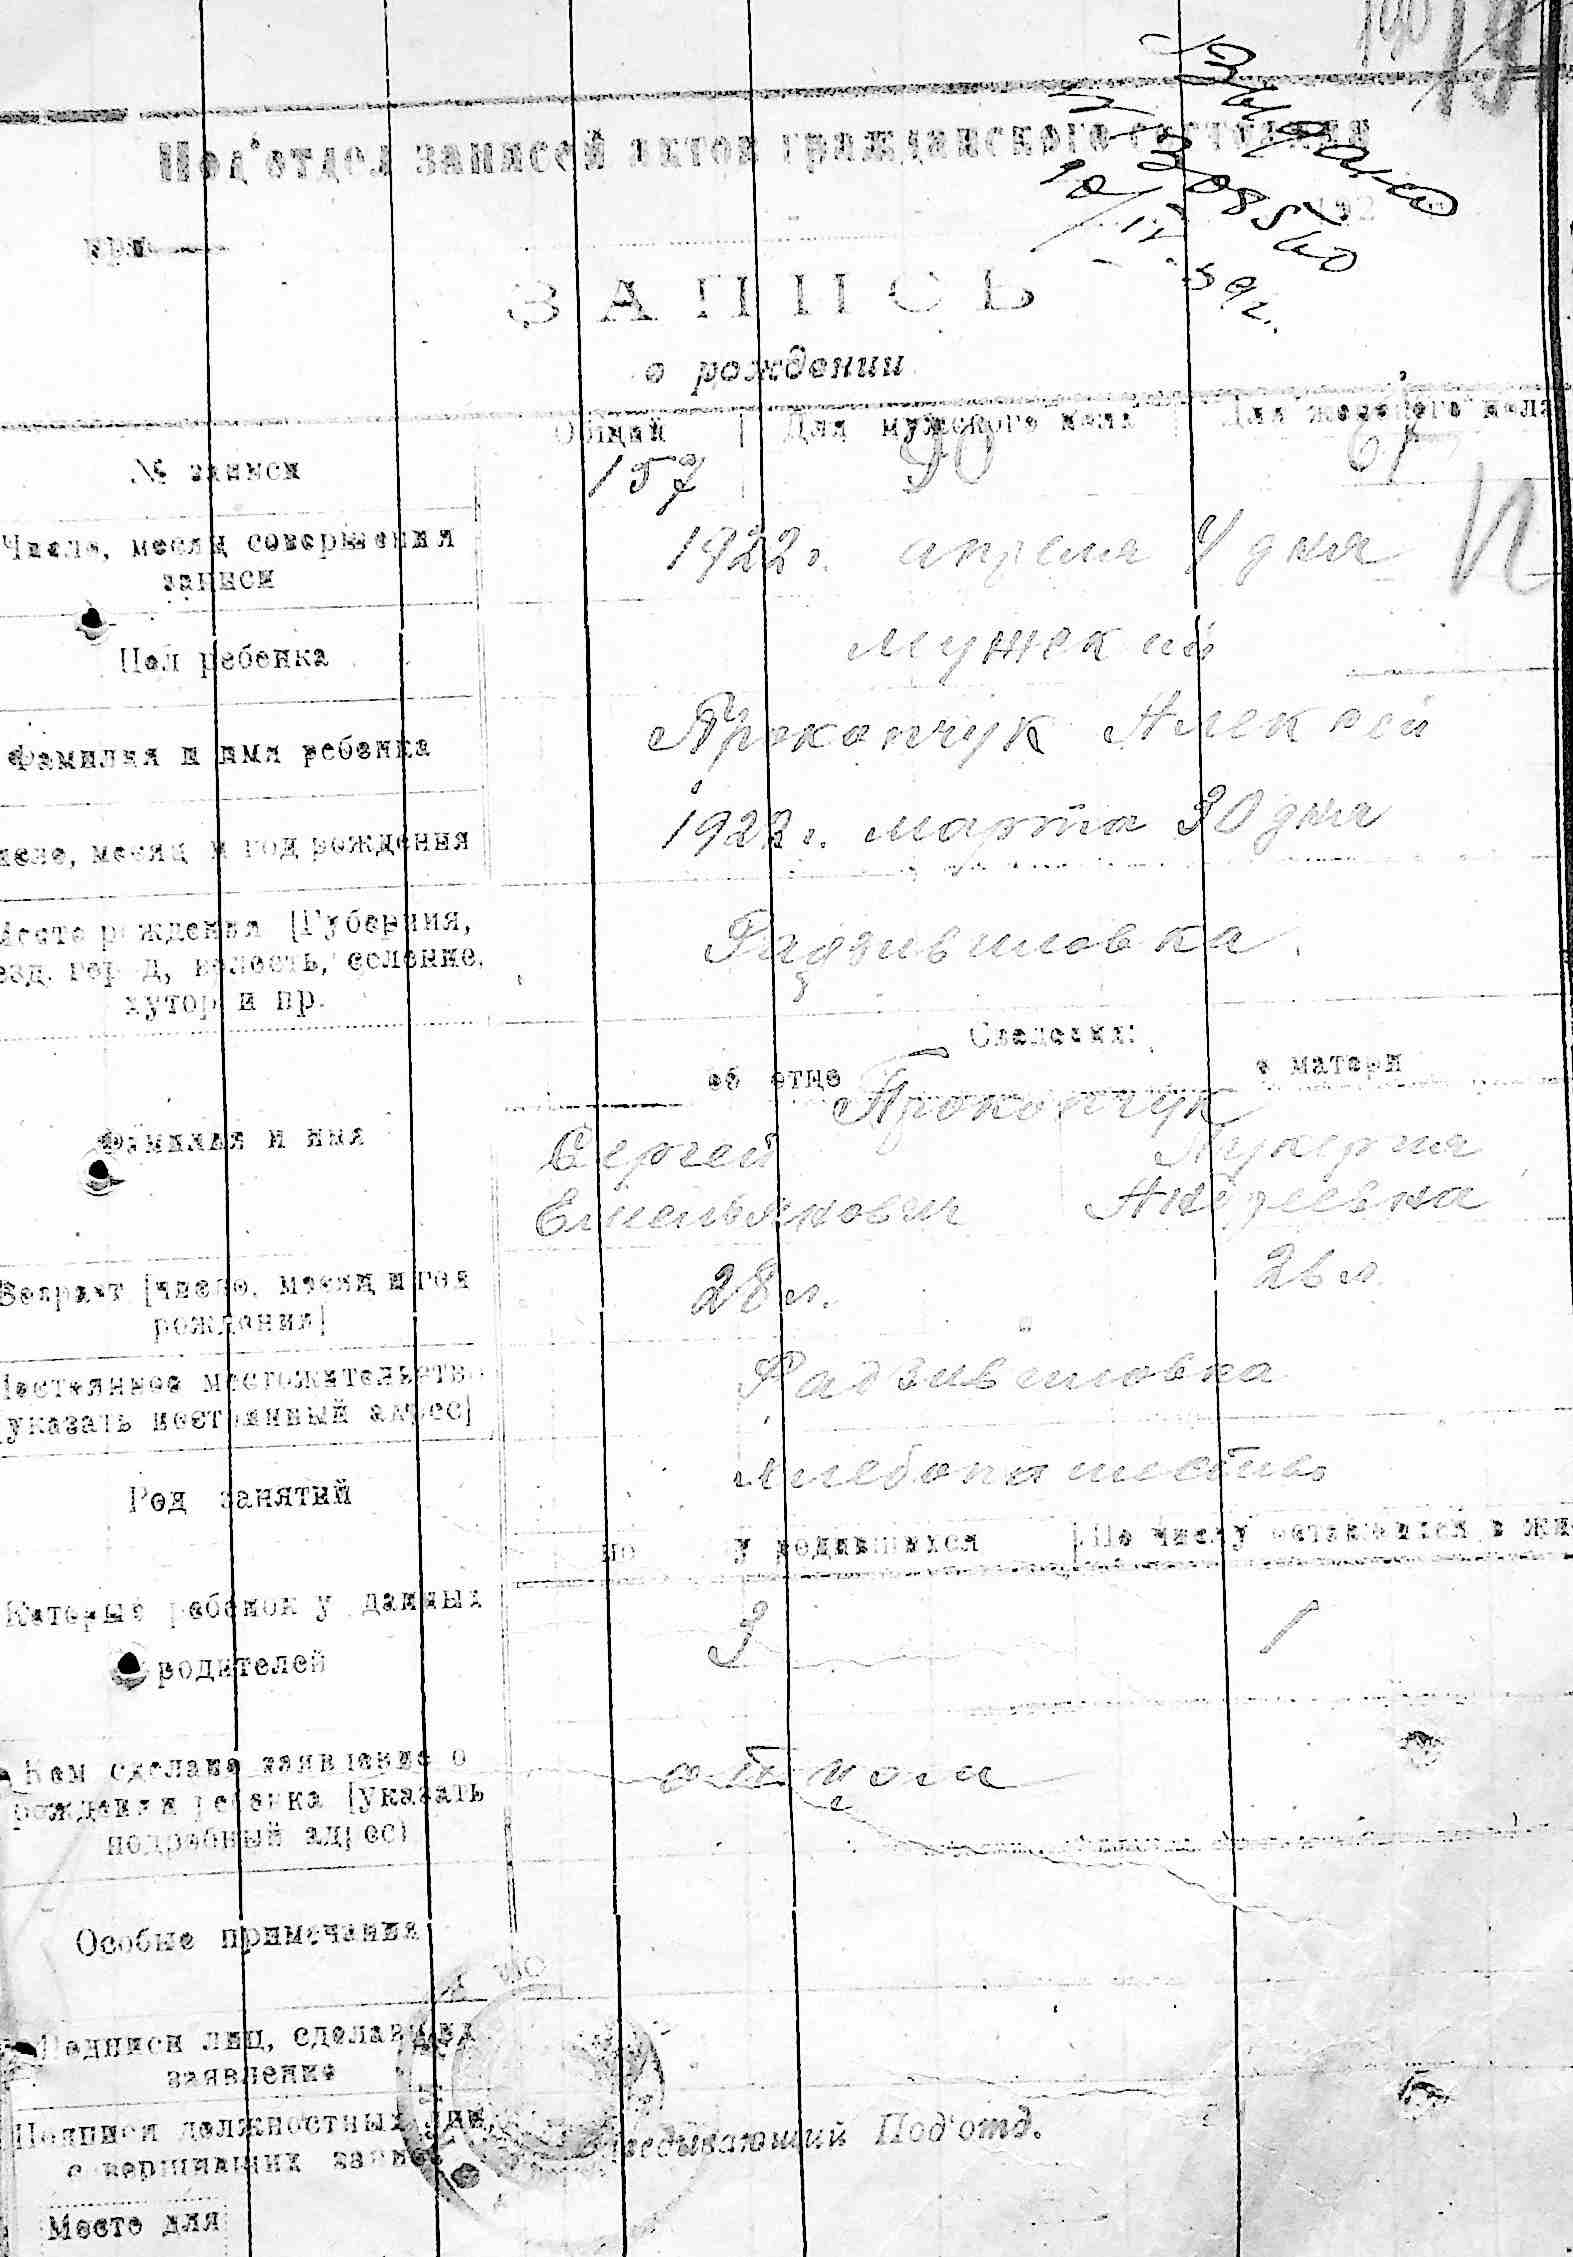 Под'отдел записей актов гражданского состояния
при
ЗАПИСЬ
о рождении
Общий Для мужского пола Для женского пола
№ записи 157 90 67
Число, месяц совершения 1922 г. апреля 4 дня
записи
Пол ребенка Мужский
Фамилия и имя ребенка Прокопчук Алексей
месяц и год рождения 1922 г. марта 30 дня
Место рождения [Губерния,
уезд, город, волость, селение, Радзивиловка
хутор и пр.
Сведения:
об отце о матери
Прокопчук
Фамилия и имя Сергей Лукерия
Емельянович Андреевна
Возраст [число, месяц и год 28 л. 26 л.
рождения]
Постоянное местожительство Радзивиловка
[указать постоянный адрес]
Род занятий хлебопашество
По числу родившихся По числу оставшихся в жи
Который ребенок у данных 3 1
родителей
Кем сделано заявление о отцом
рождении ребенка [указать
подробный адрес)
Особые примечания
Подписи лиц, сделавших
заявление
Подписи должностных лиц,
совершивших запись Заведывающий Под'отд.
Место для